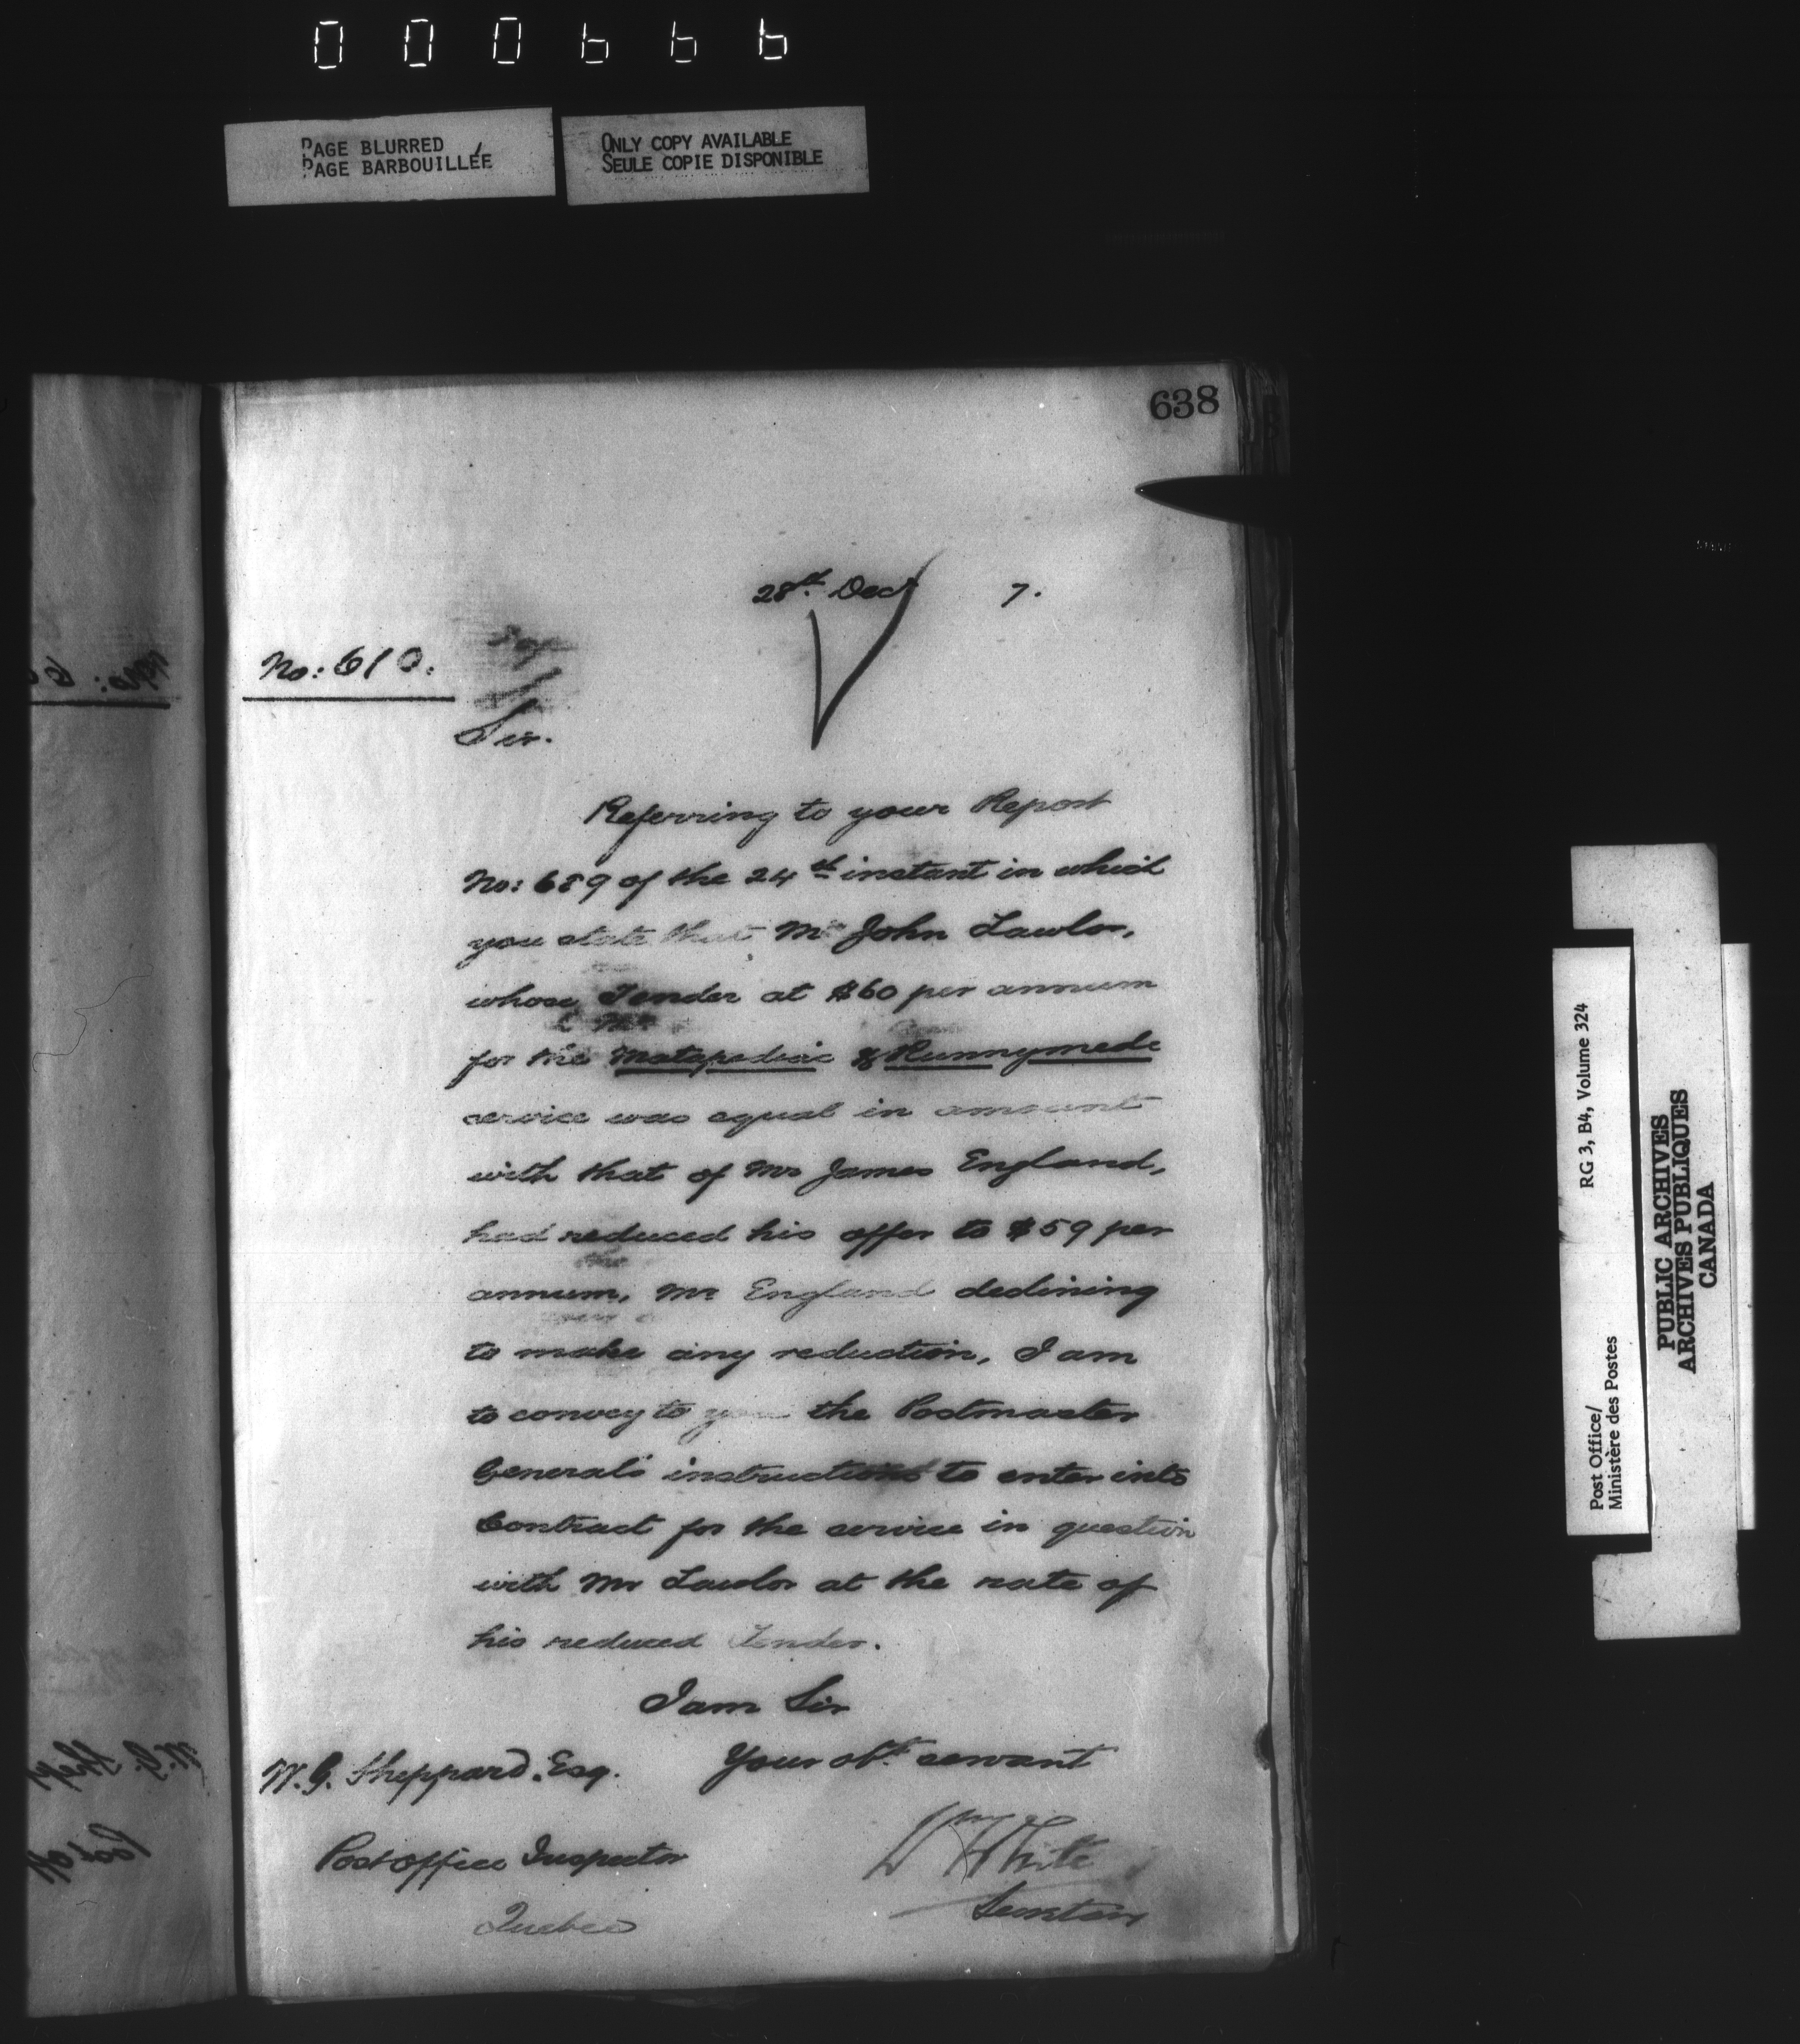 000666
PAGE BLURRED
PAGE BARBOUILLÉE
ONLY COPY AVAILABLE
SEULE COPIE DISPONIBLE
638
28th Decr 7.
No: 610.
Sir.
Referring to your Report
No: 689 of the 24th instant in which
you state that Mr John Lawlor,
whose Tender at $60 per annum
for the Matapediac & Runnymede
service was equal in amount
with that of Mr James England,
had reduced his offer to $59 per
annum, Mr England declining
to make any reduction, I am
to convey to you the Postmaster
General's instructions to enter into
Contract for the service in question
with Mr Lawlor at the rate of
his reduced Tender.
I am Sir
Your obt. servant
W. G. Sheppard, Esq.
Post office Inspector
Quebec
Wm White
Secretary
Post Office/
Ministère des Postes
RG 3, B4, Volume 324
PUBLIC ARCHIVES
ARCHIVES PUBLIQUES
CANADA